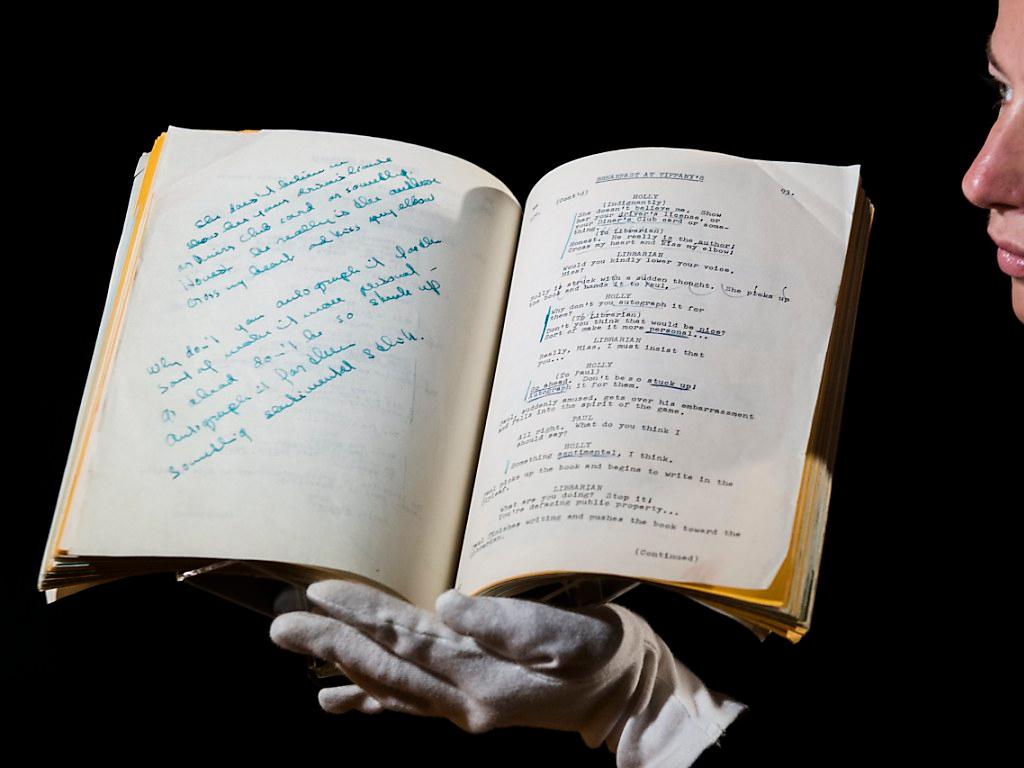 She doesn't believe me
show her your driver's license
or Diners Club card or something.
Honest He really is the author
Cross my heart and kiss my elbow
Why don't you autograph it for them
sort of make it more personal -
Go ahead don't be so stuck up -
autograph it for them
Something sentimental I think.
BREAKFAST AT TIFFANY'S
93.
(Cont'd)
HOLLY
(Indignantly)
She doesn't believe me. Show
her your driver's license, or
your Diner's Club card or some-
thing.
(To Librarian)
Honest. He really is the author;
Cross my heart and kiss my elbow;
LIBRARIAN
Would you kindly lower your voice,
Miss?
Holly is struck with a sudden thought. She picks up
the book and hands it to Paul.
HOLLY
Why don't you autograph it for
them?
(To Librarian)
Don't you think that would be nice?
Sort of make it more personal...
LIBRARIAN
Really, Miss, I must insist that
you...
HOLLY
(To Paul)
Go ahead. Don't be so stuck up;
Autograph it for them.
Paul, suddenly amused, gets over his embarrassment
and falls into the spirit of the game.
PAUL
All right. What do you think I
should say?
HOLLY
Something sentimental, I think.
Paul picks up the book and begins to write in the
flyleaf.
LIBRARIAN
What are you doing? Stop it;
You're defacing public property...
Paul finishes writing and pushes the book toward the
Librarian.
(Continued)